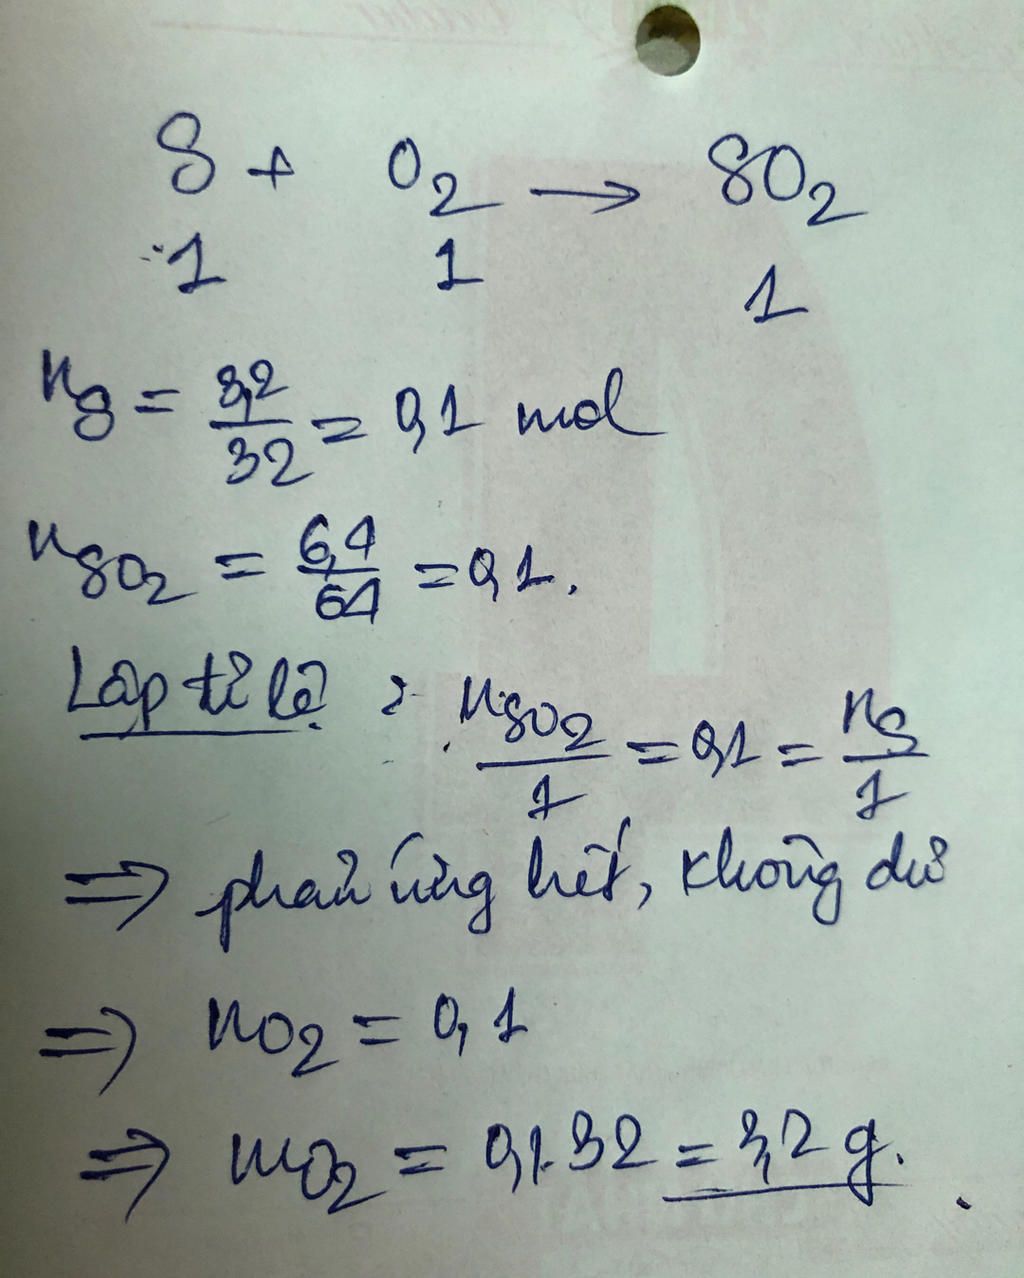 S + O₂ → SO₂
1 1 1
nS = 3,2/32 = 0,1 mol
nSO₂ = 6,4/64 = 0,1.
Lập tỉ lệ : nSO₂/1 = 0,1 = nS/1
⇒ phản ứng hết, không dư
⇒ nO₂ = 0,1
⇒ mO₂ = 0,1.32 = 3,2 g.